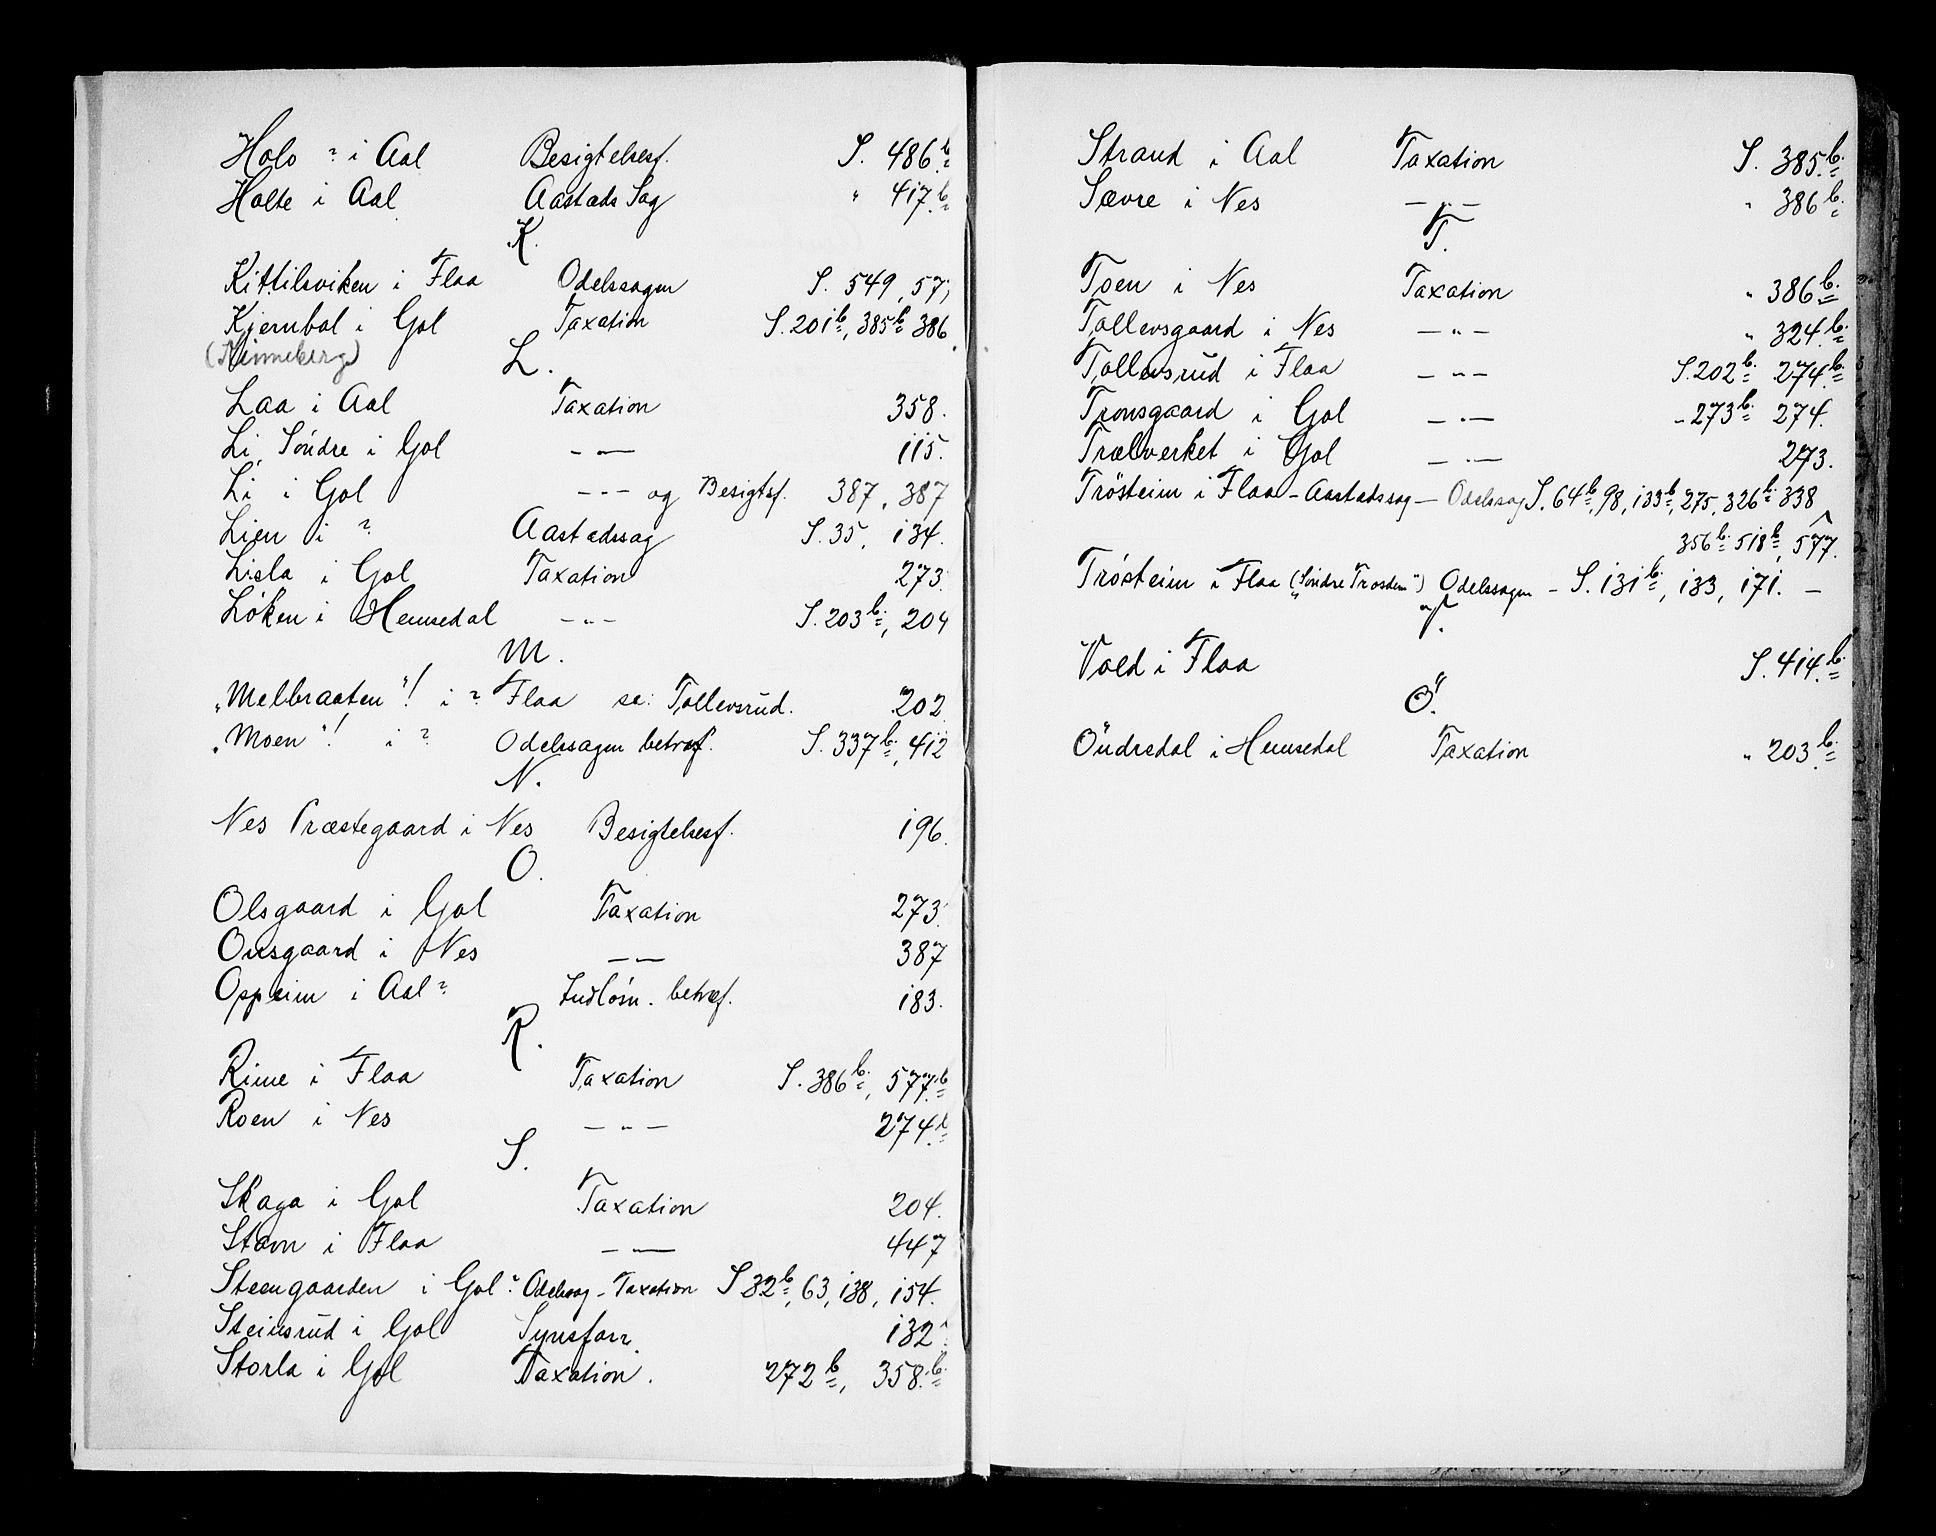 Holo ? i Aal Besigtelsesf. S. 486 b.
Holte i Aal Aastads Sag " 417 b.
K.
Kittilsviken i Flaa Odelssagen S. 549, 57
Kjernbal i Gol Taxation S. 201 b, 385 b 386.
L.
Laa i Aal Taxation 358.
Li, Söndre i Gol – – 115.
Li i Gol – – – og Besigtsf. 387, 387
Lien i ? Aastedssag S. 35, 134.
Lisla i Gol Taxation 273.
Löken i Hemsedal – " – S. 203 b, 204
M.
"Melbraaten"! i ? Flaa se: Tollevsrud. 202.
"Moen"! i ? Odelssagen betræf. S. 337 b, 412
N.
Nes Præstegaard i Nes Besigtelsesf. 196.
O.
Olsgaard i Gol Taxation 273.
Onsgaard i Nes – – 387
Oppeim i Aal ? Indlösn. betræf. 183.
R.
Rime i Flaa Taxation S. 386 b, 577 b
Roen i Nes – " – 274 b
S.
Skaga i Gol Taxation 204.
Stavn i Flaa – – 447
Steengaarden i Gol ? Odelssag – Taxation S 32 b, 63, 138, 154.
Steinsrud i Gol Synsforr. 132
Storla i Gol Taxation. 272 b, 358 b.
Strand i Aal Taxation S. 385 b.
Sævre i Nes – " – " 386 b.
T.
Toen i Nes Taxation " 386 b.
Tollevsgaard i Nes – " – " 324 b.
Tollevsrud i Flaa – " – S. 202 b. 274 b.
Tronsgaard i Gol – " – - 273 b. 274.
Trælverket i Gol – " – 273.
Trösteim i Flaa – Aastadssag – Odelssag S. 64 b, 98, 133 b, 275, 326 b. 338
356 b. 518 b, 577.
Trösteim i Flaa ("Söndre Trostem") Odelssagen – S. 131 b., 133, 171. –
V.
Vold i Flaa S. 414 b.
Ö.
Öndredal i Hemsedal Taxation " 203 b.